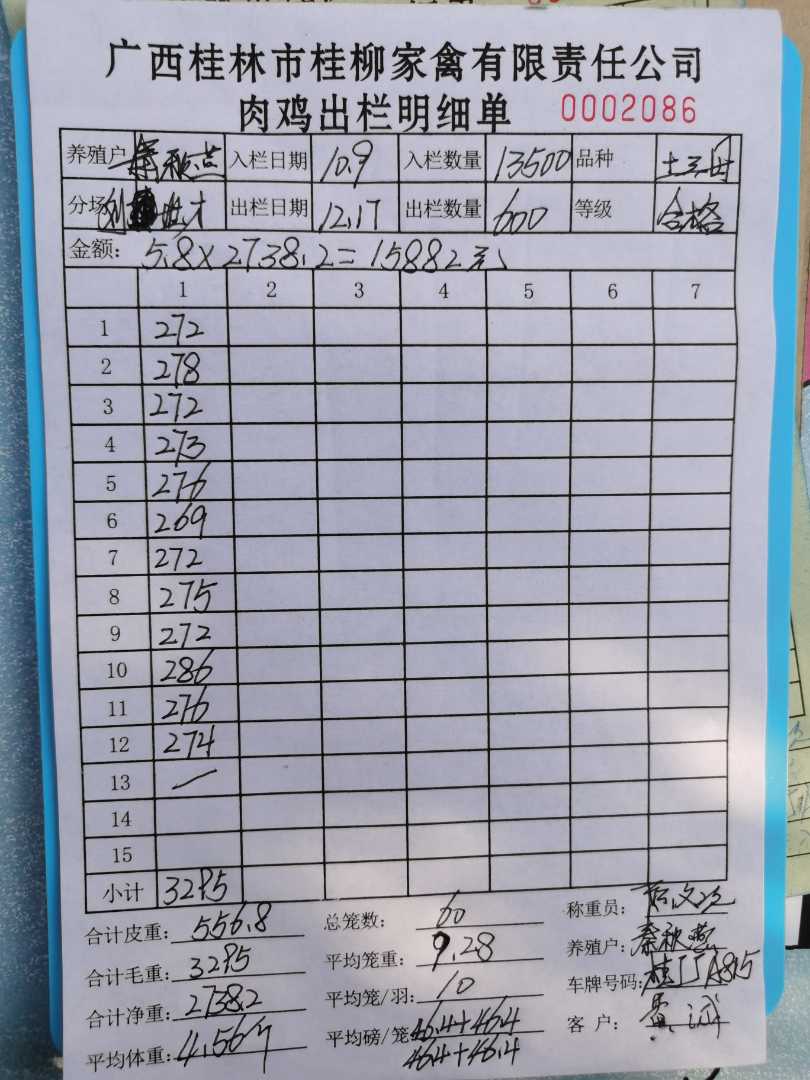 广西桂林市桂柳家禽有限责任公司
肉鸡出栏明细单 0002086
养殖户 秦秋燕 入栏日期 10.9 入栏数量 13500 品种 土三
分场 出栏日期 12.17 出栏数量 600 等级 合格
金额: 5.8×2738.2=15882元
1 2 3 4 5 6 7
1 272
2 278
3 272
4 273
5 276
6 269
7 272
8 275
9 272
10 286
11 276
12 274
13 /
14
15
小计 3295
合计皮重: 556.8 总笼数: 60 称重员:
合计毛重: 3295 平均笼重: 9.28 养殖户: 秦秋燕
合计净重: 2738.2 平均笼/羽: 10 车牌号码: 桂
平均体重: 4.56斤 平均磅/笼 46.4+46.4 客 户:
46.4+46.4